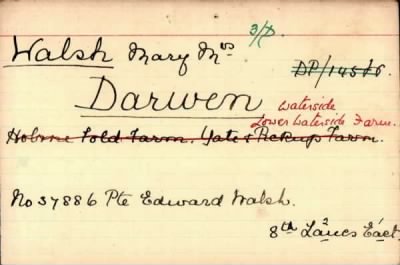 3/D.
Walsh Mary Mrs
DP/14516.
Darwen
Waterside
Lower Waterside Farm.
Holme Fold Farm. Yate & Pickup Farm.
No 37886 Pte Edward Walsh.
8th Lancs East.